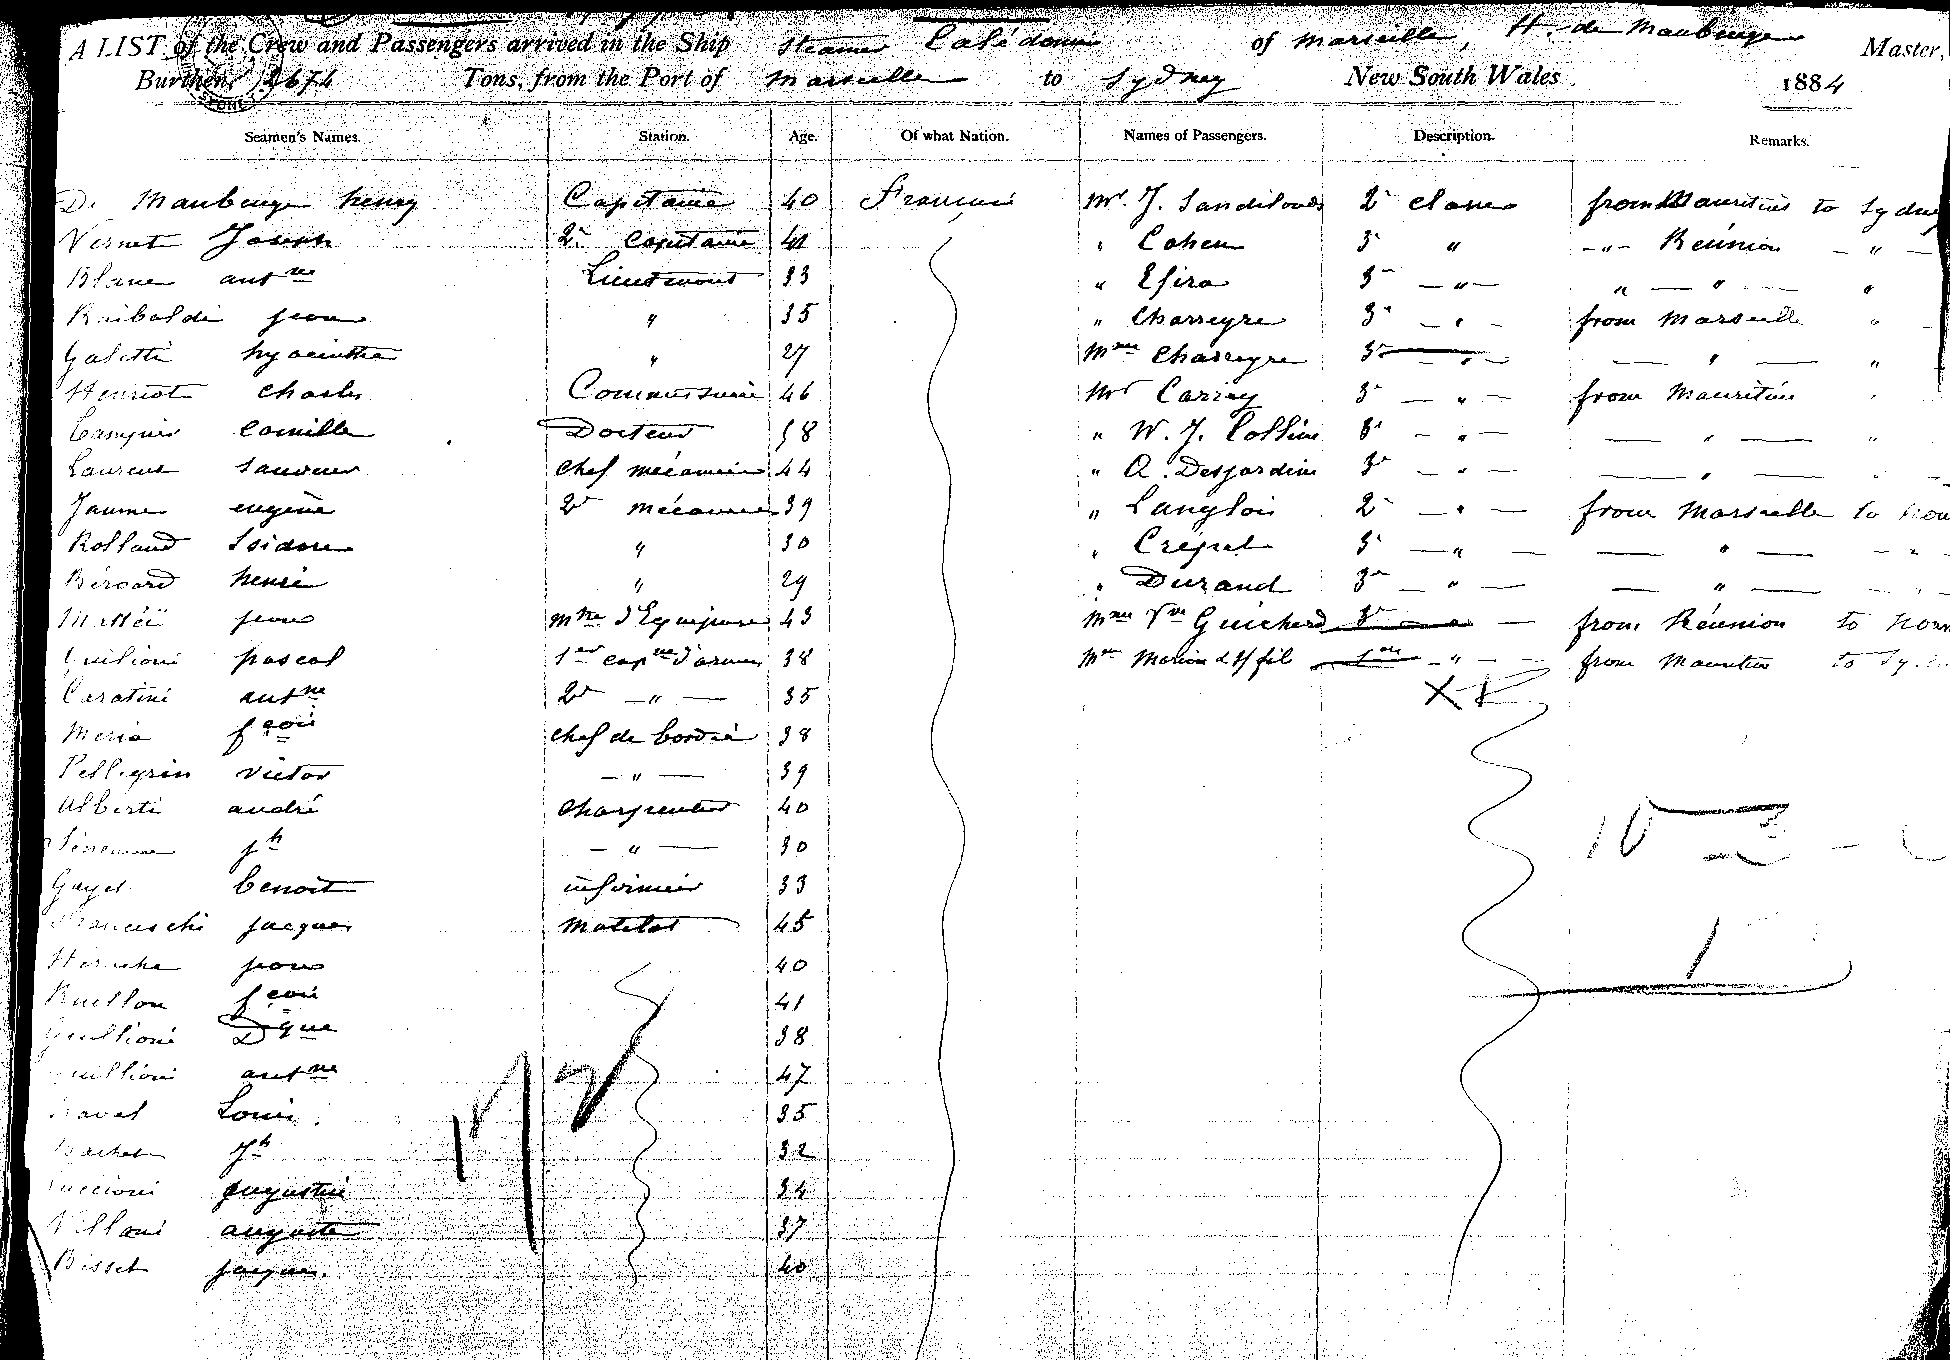 A LIST of the Crew and Passengers arrived in the Ship Steamer Calédonien of Marseille, H. de Maubeuge Master,
Burthen, 1674 Tons, from the Port of Marseille to Sydney New South Wales 1884
Seamen's Names. Station. Age. Of what Nation. Names of Passengers. Description. Remarks.
De Maubeuge henry Capitaine 40 Français Mr. J. Sandilands 2e classe from Mauritius to Sydney
Vernet Joseph 2e Capitaine 41 " Cohen 3e " -"- Réunion - " -
Blanc antne Lieutenant 33 " Efira 3e -"- " - " - "
Raibaldi jean " 35 " Charreyre 3e -"- from Marseille "
Galetti hyacinthe " 27 Mme Charreyre 3e -"- - " - "
Henriot Charles Commissaire 46 Mr Carrey 3e -"- from Mauritius "
Camille Docteur 38 " W. J. Collins 3e -"- - " - "
Laurent Sauveur Chef mécanicien 44 " A. Desjardins 3e -"- - " -
Jaume eugène 2e mécanicien 39 " Langlois 2e -"- from Marseille to nou
Rolland Isidore " 30 " Crépet 3e -"- - " - - " -
Bérard henri " 29 " Durand 3e -"- - " -
Mattéï jean mtre d'Equipage 43 Mme Vve Guichard 3e - from Réunion to nou
pascal 1er capne d'armes 38 Mme Marion & s/ fil 1re -"- from Mauritius to Sy
Caratini antne 2e -"- 35
Meria fçois chef de bordée 38
Pellegrin Victor -"- 39
Alberti andré Charpentier 40
jh -"- 30
Gayet benoit infirmier 33
Franceschi jacques Matelot 45
jean 40
Ruillon fçois 41
Dque 38
antne 47
Louis 35
Jh 32
augustin 34
Villani auguste 37
Bisset jacques 40
172
10 2
1